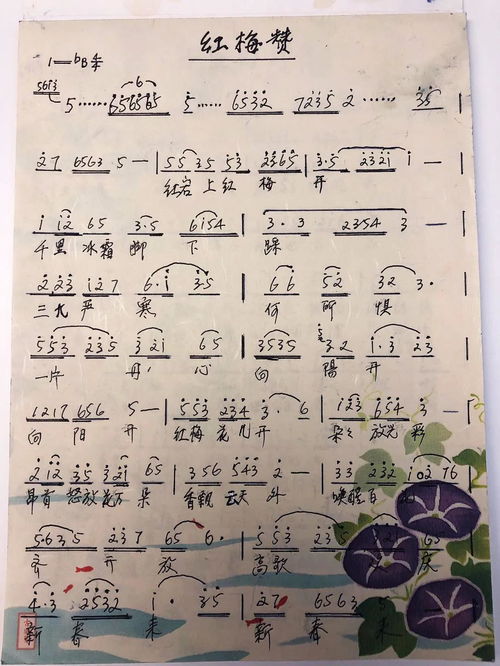 红梅赞
1=bB 调
5613 5······ 6561565 5······ 6532 7235 2······ 35 |
27 6563 5 — | 55 35 53 2365 | 3·5 2321 1 — |
红岩 上 红 梅 开
1 12 65 3·5 6154 | 3·3 2354 3 — |
千里 冰霜 脚 下 踩
2 223 127 6·1 3·5 | 66 52 32 3·
三九 严 寒 何 所 惧
553 235 321 65 | 3535 32 1·3 23
一片 丹 心 向 阳 开
1217 656 5 — | 553 234 3· 6 | 123 654 3 — |
向 阳 开 红梅 花儿 开 朵朵 放光 彩
212 35 321 65 | 356 543 2 — | 33 232 1 0 2 76
昂首 怒放 花万 朵 香飘 云天 外 唤醒 百
5635 237 65 6· | 553 235 321 65
齐 开 放 高歌 庆
4·3 2532 1· 35 | 27 6563 5
新 春 来 新 春 来